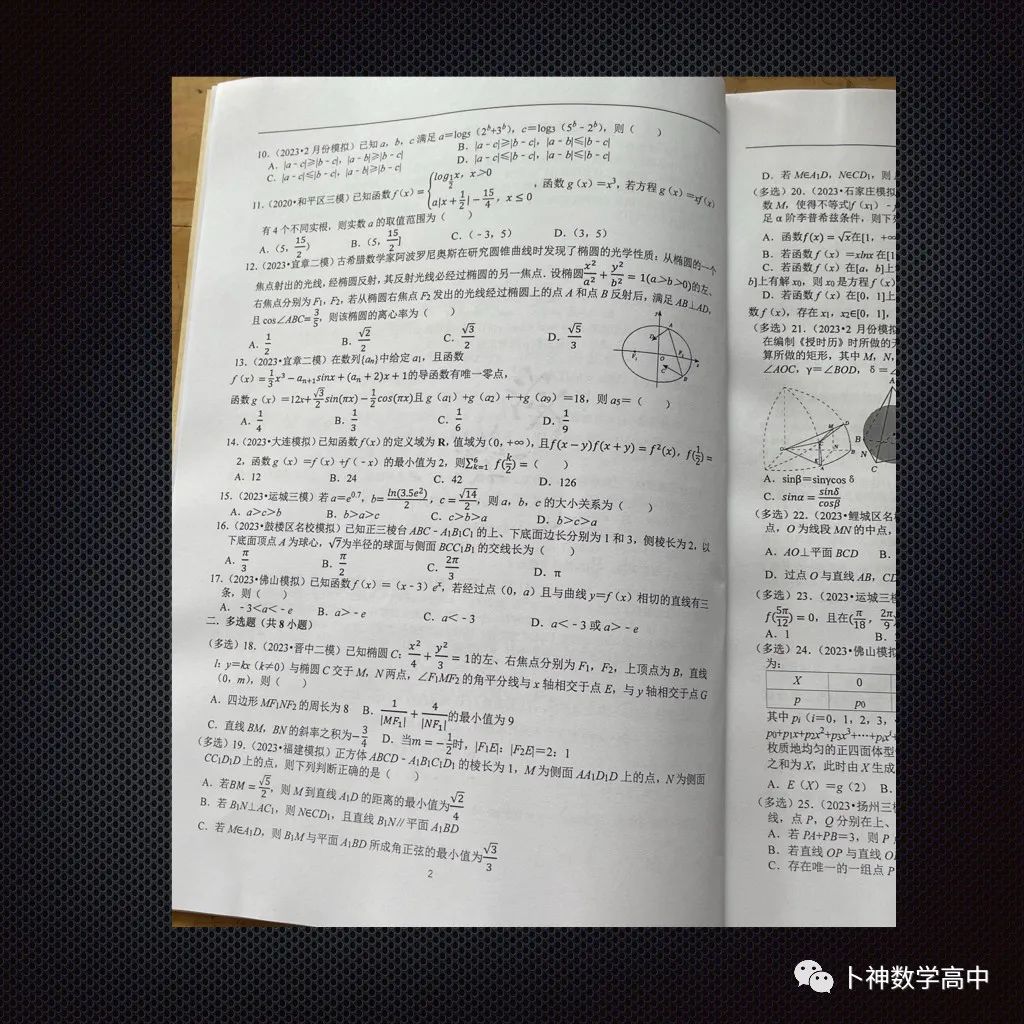 10.（2023•2 月份模拟）已知 a，b，c 满足 a＝log5（2^b+3^b），c＝log3（5^b﹣2^b），则（　　）
A．|a﹣c|≥|b﹣c|，|a﹣b|≥|b﹣c|　B．|a﹣c|≥|b﹣c|，|a﹣b|≤|b﹣c|
C．|a﹣c|≤|b﹣c|，|a﹣b|≥|b﹣c|　D．|a﹣c|≤|b﹣c|，|a﹣b|≤|b﹣c|
11.（2020•和平区三模）已知函数 f（x）＝{log_{1/2}x，x＞0；a|x+1/2|﹣15/4，x≤0，函数 g（x）＝x^3，若方程 g（x）＝xf（x）
有 4 个不同实根，则实数 a 的取值范围为（　　）
A.（5，15/2）　B.（5，15/2]　C.（﹣3，5）　D.（3，5）
12.（2023•宜章二模）古希腊数学家阿波罗尼奥斯在研究圆锥曲线时发现了椭圆的光学性质：从椭圆的一个
焦点射出的光线，经椭圆反射，其反射光线必经过椭圆的另一焦点．设椭圆x^2/a^2+y^2/b^2=1(a＞b＞0)的左、
右焦点分别为 F1，F2，若从椭圆右焦点 F2 发出的光线经过椭圆上的点 A 和点 B 反射后，满足 AB⊥AD，
且 cos∠ABC=3/5，则该椭圆的离心率为（　　）
A．1/2　B．√2/2　C．√3/2　D．√5/3
13.（2023•宜章二模）在数列{an}中给定 a1，且函数
f（x）＝1/3x^3－a_{n+1}sinx+(an+2)x+1的导函数有唯一零点，
函数 g（x）＝12x+√3/2sin(πx)－1/2cos(πx)且 g（a1）+g（a2）+ +g（a9）＝18，则 a5＝（　　）
A．1/4　B．1/3　C．1/6　D．1/9
14.（2023•大连模拟）已知函数 f（x）的定义域为 R，值域为（0，+∞），且f(x－y)f(x+y)=f^2(x)，f(1/2)=
2，函数 g（x）＝f（x）+f（﹣x）的最小值为 2，则∑_{k=1}^{6} f(k/2)=（　　）
A．12　B．24　C．42　D．126
15.（2023•运城三模）若 a＝e^0.7，b=ln(3.5e^2)/2，c=√14/2，则 a，b，c 的大小关系为（　　）
A．a＞c＞b　B．b＞a＞c　C．c＞b＞a　D．b＞c＞a
16.（2023•鼓楼区名校模拟）已知正三棱台 ABC﹣A1B1C1 的上、下底面边长分别为 1 和 3，侧棱长为 2，以
下底面顶点 A 为球心，√7为半径的球面与侧面 BCC1B1 的交线长为（　　）
A．π/3　B．π/2　C．2π/3　D．π
17.（2023•佛山模拟）已知函数 f（x）＝（x﹣3）e^x，若经过点（0，a）且与曲线 y＝f（x）相切的直线有三
条，则（　　）
A．﹣3＜a＜﹣e　B．a＞﹣e　C．a＜﹣3　D．a＜﹣3 或 a＞﹣e
二．多选题（共 8 小题）
（多选）18.（2023•晋中二模）已知椭圆 C：x^2/4+y^2/3=1的左、右焦点分别为 F1，F2，上顶点为 B，直线
l：y＝kx（k≠0）与椭圆 C 交于 M，N 两点，∠F1MF2 的角平分线与 x 轴相交于点 E，与 y 轴相交于点 G
（0，m），则（　　）
A．四边形 MF1NF2 的周长为 8　B．1/|MF1|+4/|NF1|的最小值为 9
C．直线 BM，BN 的斜率之积为－3/4　D．当m=－1/2时，|F1E|：|F2E|＝2：1
（多选）19.（2023•福建模拟）正方体 ABCD﹣A1B1C1D1 的棱长为 1，M 为侧面 AA1D1D 上的点，N 为侧面
CC1D1D 上的点，则下列判断正确的是（　　）
A．若BM=√5/2，则 M 到直线 A1D 的距离的最小值为√2/4
B．若 B1N⊥AC1，则 N∈CD1，且直线 B1N∥平面 A1BD
C．若 M∈A1D，则 B1M 与平面 A1BD 所成角正弦的最小值为√3/3
2
D．若 M∈A1D，N∈CD1，则
（多选）20.（2023•石家庄模拟
数 M，使得不等式|f（x1）﹣
足 α 阶李普希兹条件，则下
A．函数f(x)=√x在[1，+∞
B．若函数 f（x）＝xlnx 在[1
C．若函数 f（x）在[a，b]上
b]上有解 x0，则 x0 是方程 f（x）
D．若函数 f（x）在[0，1]上
数 f（x），存在 x1，x2∈[0，1]，
（多选）21.（2023•2 月份模
在编制《授时历》时所做的
算所做的矩形，其中 M，N，
∠AOC，γ＝∠BOD，δ＝
A．sinβ＝sinγcosδ
C．sinα=sinδ/cosβ
（多选）22.（2023•鲤城区名
点，O 为线段 MN 的中点，
A．AO⊥平面 BCD　B．
D．过点 O 与直线 AB，CD
（多选）23.（2023•运城三模
f(5π/12)=0，且在(π/18，2π/9
A．1　B．
（多选）24.（2023•佛山模拟
为：
X　0
p　p0
其中 pi（i＝0，1，2，3，
p0+p1x+p2x^2+p3x^3+⋯+pkx^k
枚质地均匀的正四面体型
之和为 X，此时由 X 生成
A．E（X）＝g（2）　B．
（多选）25.（2023•扬州三模
线，点 P，Q 分别在上、
A．若 PA+PB＝3，则 P
B．若直线 OP 与直线 O
C．存在唯一的一组点 P
卜神数学高中